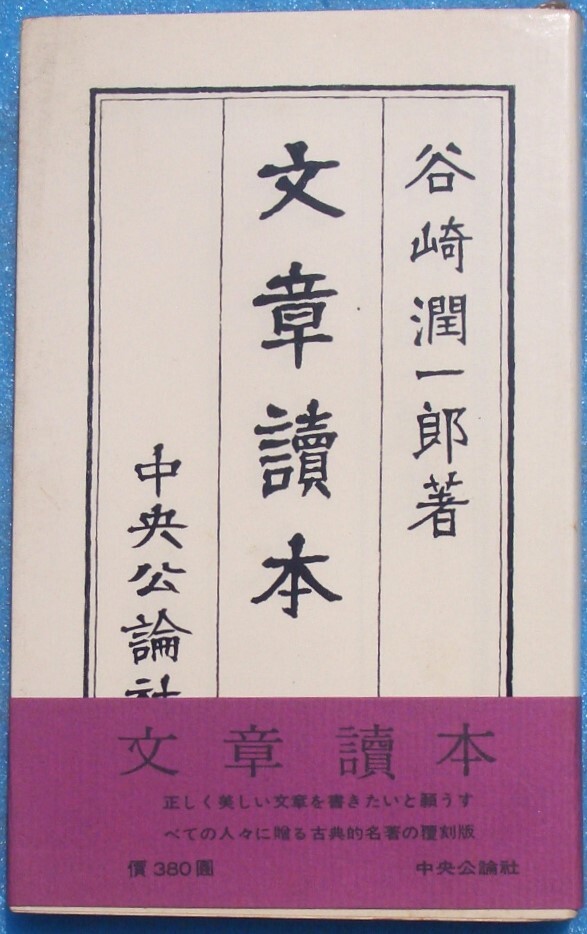 谷崎潤一郎著
文章讀本
中央公論社
文章讀本
正しく美しい文章を書きたいと願うす
べての人々に贈る古典的名著の覆刻版
價380圓
中央公論社